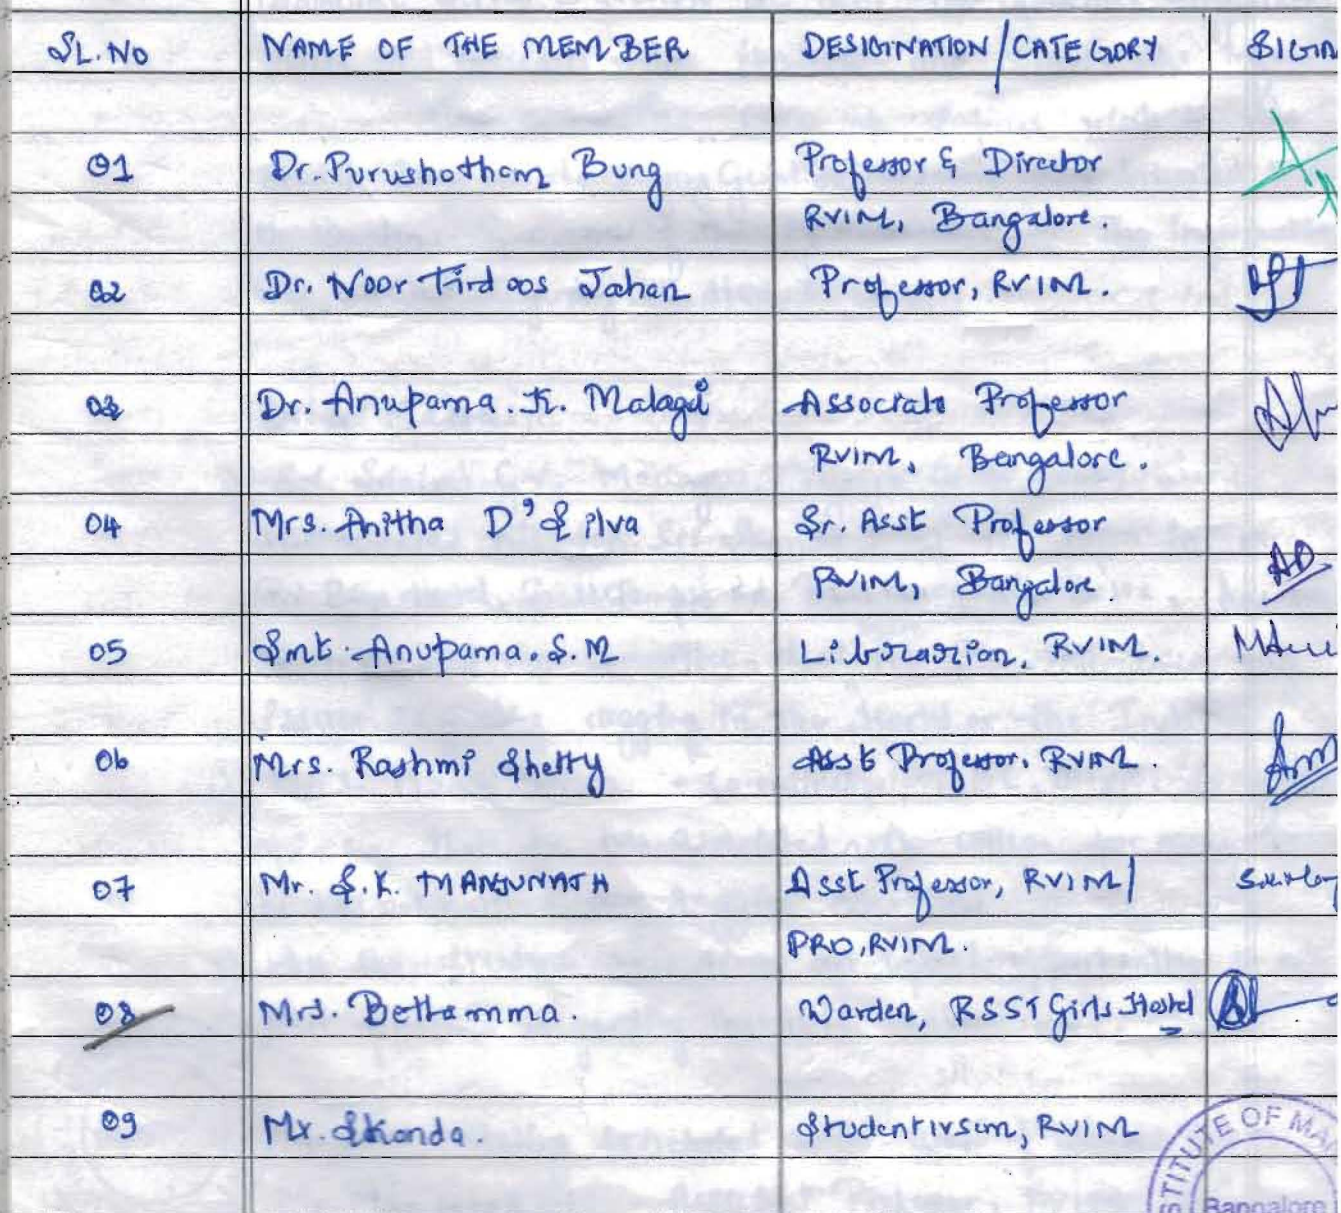 SL.NO NAME OF THE MEMBER DESIGINATION/CATEGORY SIGN
01 Dr. Purushotham Bung Professor & Director
RVIM, Bangalore.
02 Dr. Noor Firdoos Jahan Professor, RVIM.
03 Dr. Anupama. K. Malagi Associate Professor
RVIM, Bangalore.
04 Mrs. Anitha D'Silva Sr. Asst Professor
RVIM, Bangalore.
05 Smt. Anupama. S.M Librarian, RVIM.
06 Mrs. Rashmi Shetty Asst Professor, RVIM.
07 Mr. S.K. MANJUNATH Asst Professor, RVIM/
PRO, RVIM.
08 Mrs. Bettamma. Warden, RSST Girls Hostel
09 Mr. Skanda. RVIM
STITUTE OF MA
Bangalore